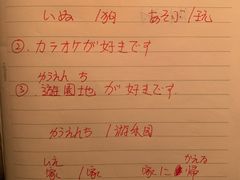 いぬ / 狗 あそぶ / 玩
②. カラオケが好きです
ゆうえんち
③ 遊園地 が 好きです
ゆうえんち / 游乐园
いえ かえる
家 / 家 家に 帰